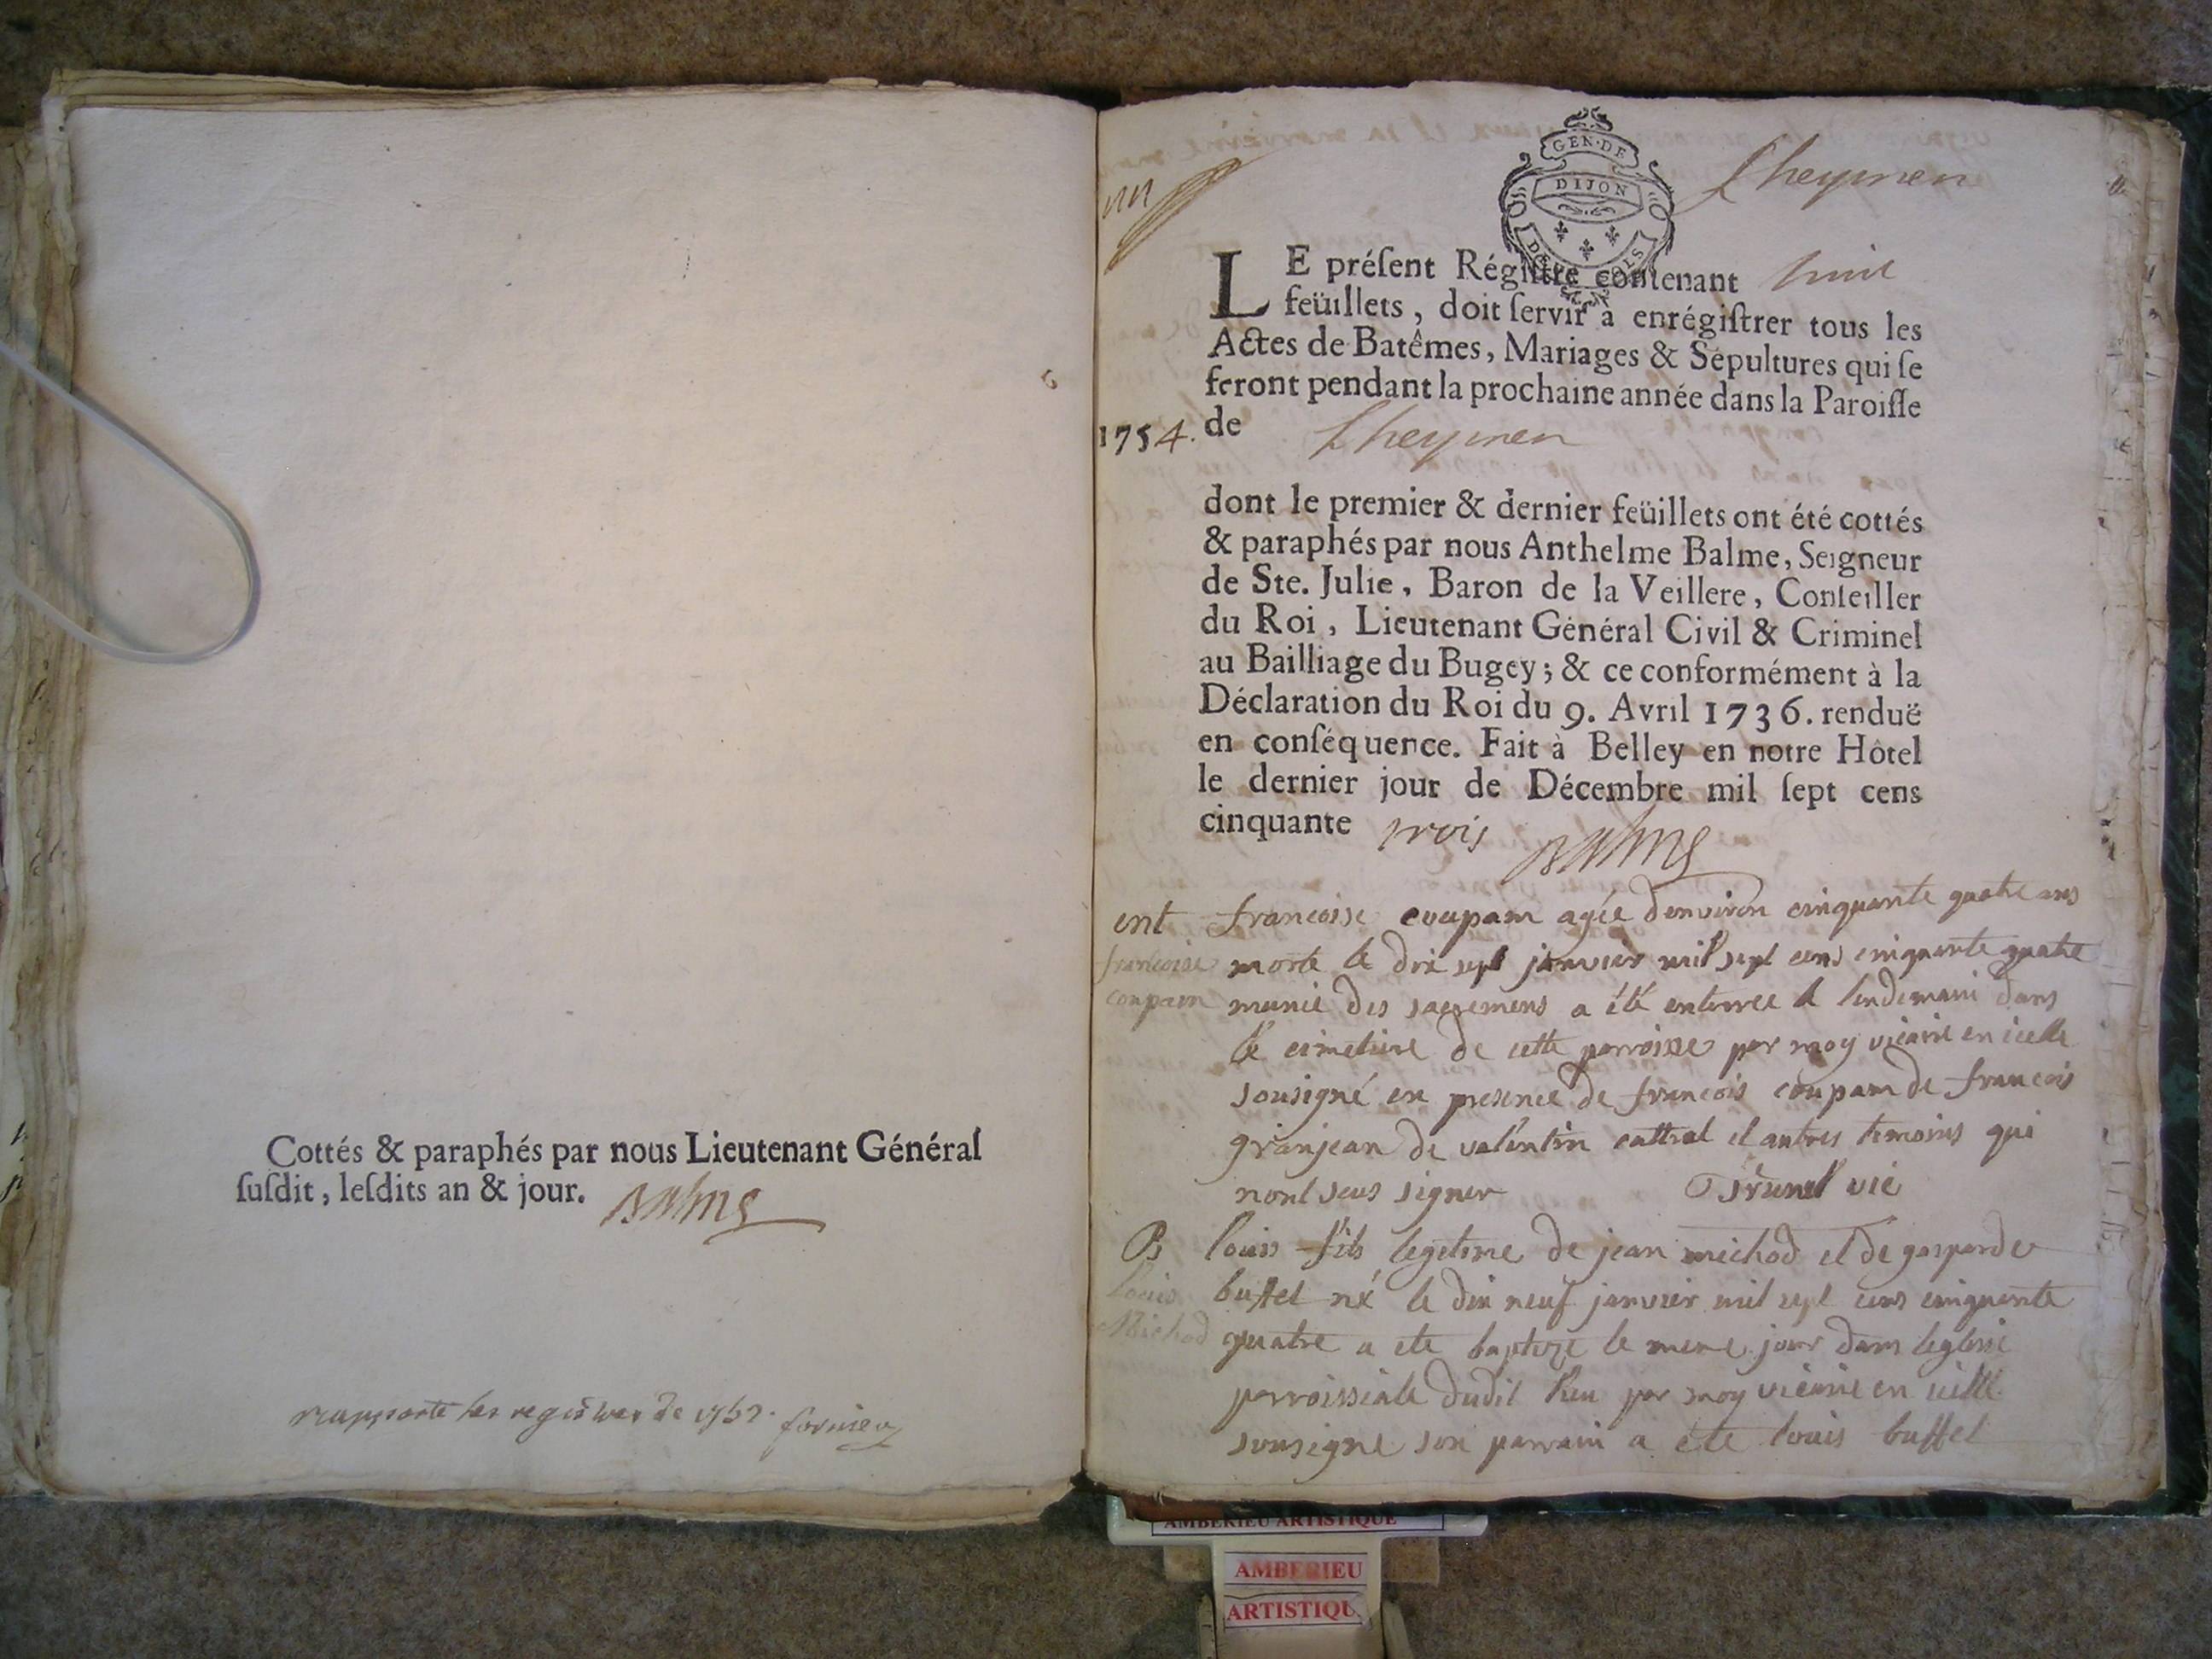 Cottés & paraphés par nous Lieutenant Général
ſuſdit, leſdits an & jour. Balme
rapporté les registres de 1752.
GEN·DE
DIJON
Lheymen
LE préſent Régiſtre contenant huit
feüillets, doit ſervir à enrégiſtrer tous les
Actes de Batêmes, Mariages & Sépultures qui ſe
feront pendant la prochaine année dans la Paroiſſe
1754. de Lheymen
dont le premier & dernier feüillets ont été cottés
& paraphés par nous Anthelme Balme, Seigneur
de Ste. Julie, Baron de la Veillere, Conſeiller
du Roi, Lieutenant Général Civil & Criminel
au Bailliage du Bugey; & ce conformément à la
Déclaration du Roi du 9. Avril 1736. renduë
en conſéquence. Fait à Belley en notre Hôtel
le dernier jour de Décembre mil ſept cens
cinquante trois Balme
ent francoise coupam agée denviron cinquante quatre ans
francoise morte le dix sept janvier mil sept cens cinquante quatre
coupam munie des sacremens a été enterree le lendemain dans
le cimetiere de cette parroisse par moy vicaire en icelle
sousigné en presence de francois coupam de francois
granjean de valentin cattral et autres temoins qui
nont seus signer Brunet vic
B louis fils legitime de jean michod et de gasparde
louis buffet né le dix neuf janvier mil sept cens cinquante
Michod quatre a ete baptize le meme jour dans leglise
parroissiale dudit lieu par moy vicaire en icelle
sousigne son parrain a ete louis buffet
AMBERIEU ARTISTIQUE
AMBERIEU
ARTISTIQU